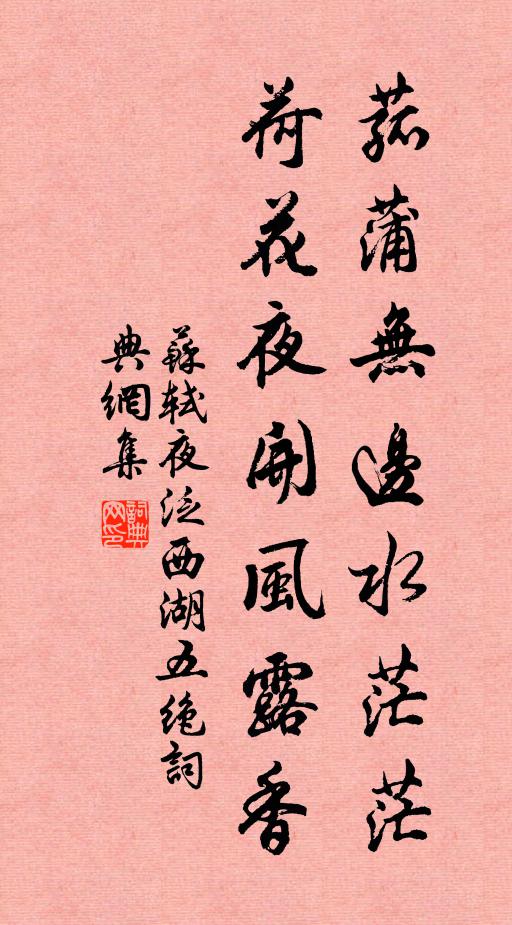 菰蒲無邊水茫茫
荷花夜開風露香
蘇軾夜泛西湖五絕詞
典網集
詞典
网印